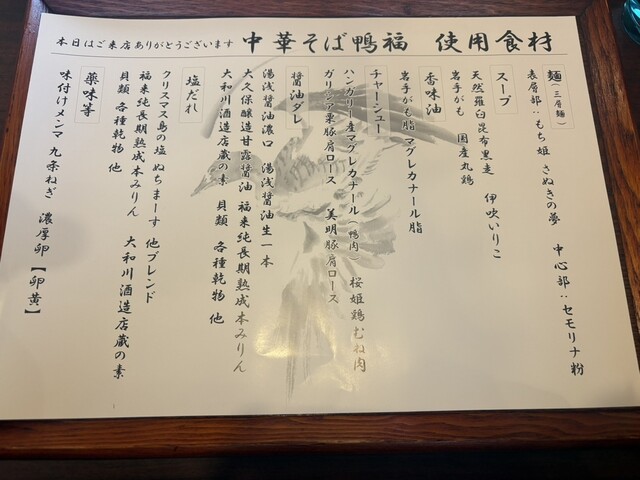 本日はご来店ありがとうございます 中華そば鴨福 使用食材
麺(三層麺)
表層部：もち姫 さぬきの夢 中心部：セモリナ粉
スープ
天然羅臼昆布黒走 伊吹いりこ
岩手がも 国産丸鶏
香味油
岩手がも脂 マグレカナール脂
チャーシュー
ハンガリー産マグレカナール(鴨肉) 桜姫鶏むね肉
ガリシア栗豚肩ロース 美明豚肩ロース
醤油ダレ
湯浅醤油濃口 湯浅醤油生一本
大久保醸造甘露醤油 福来純長期熟成本みりん
大和川酒造店蔵の素 貝類 各種乾物 他
塩だれ
クリスマス島の塩 ぬちまーす 他ブレンド
福来純長期熟成本みりん 大和川酒造店蔵の素
貝類 各種乾物 他
薬味等
味付けメンマ 九条ねぎ 濃厚卵【卵黄】